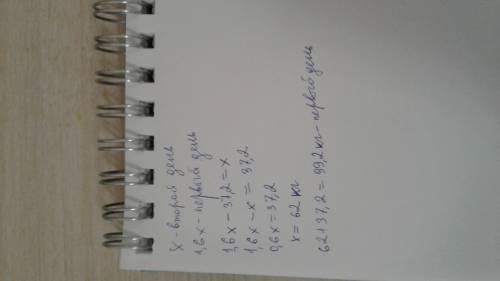 x - второй день
1,6x - первый день
1,6x - 37,2 = x
1,6x - x = 37,2
0,6x = 37,2
x = 62 кг
62 + 37,2 = 99,2 кг - первый день